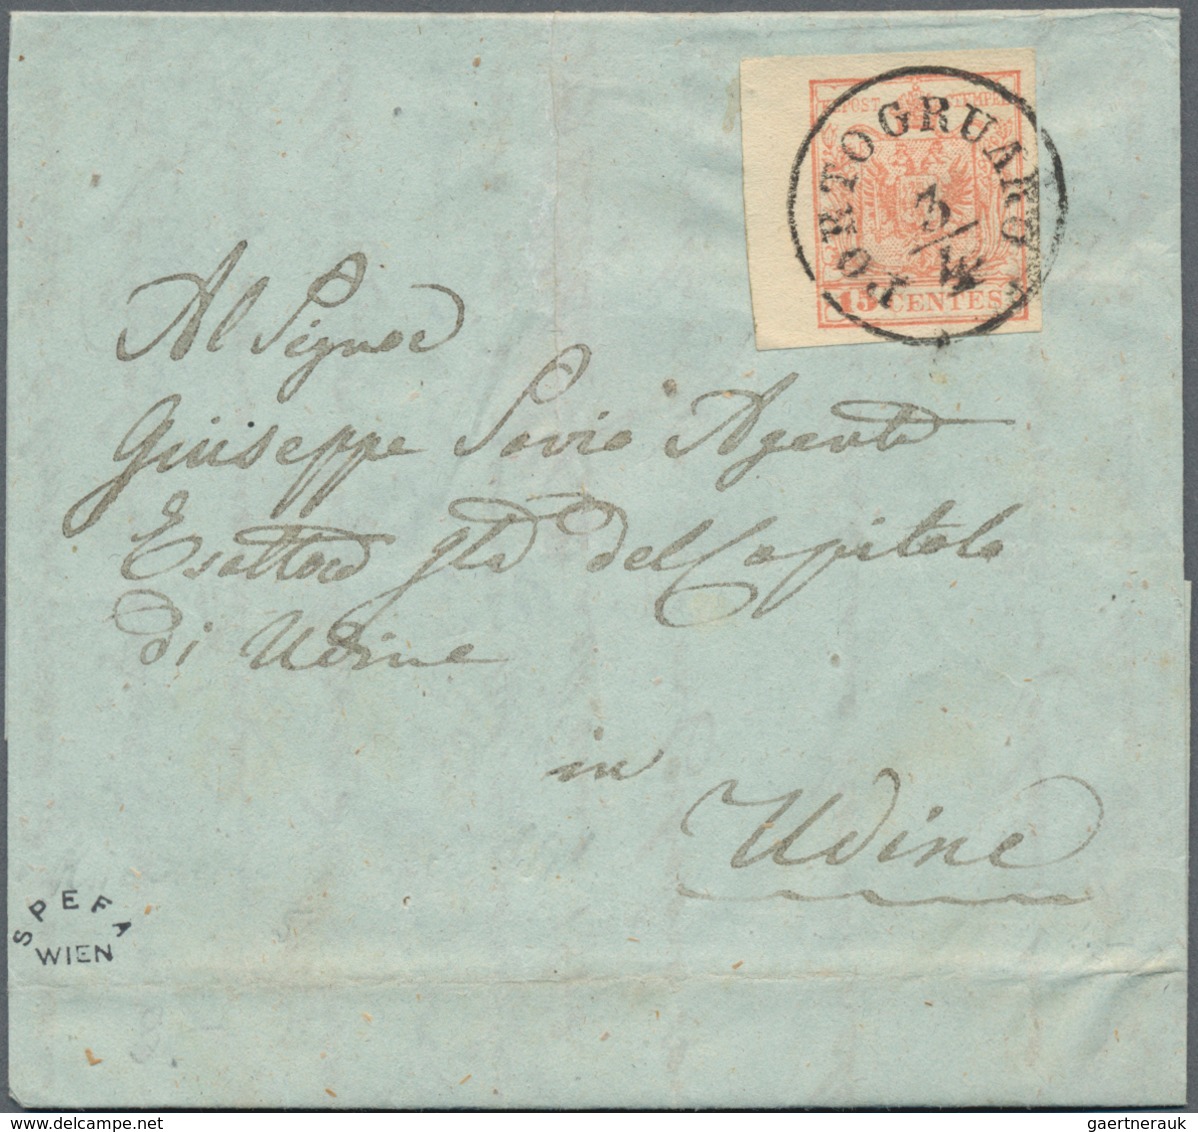 K.K.POST-STEMPEL
15 CENTES
PORTOGRUARO
3/
Al Signor
Giuseppe Savio Agente
Esattore gle del Capitolo
di Udine
in
Udine
SPEFA
WIEN
delcampe.net
gaertnerauk